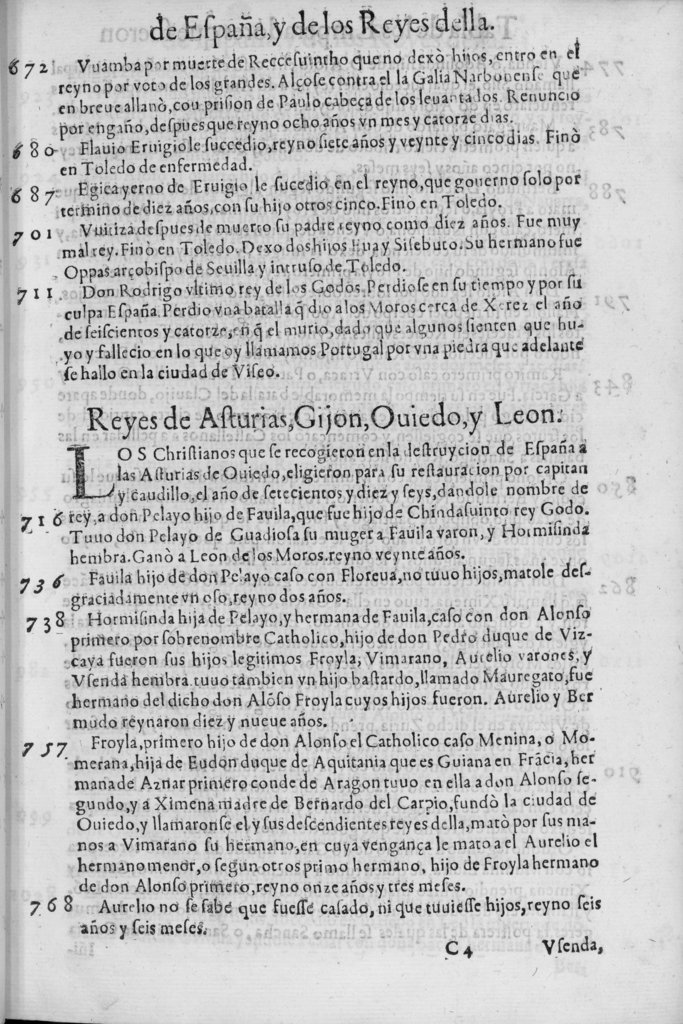 de España, y de los Reyes della.
672 Vuamba por muerte de Reccesuintho que no dexò hijos, entro en el
reyno por voto de los grandes. Alçose contra el la Galia Narbonense que
en breue allanò, cou prision de Paulo cabeça de los leuantados. Renuncio
por engaño, despues que reyno ocho años vn mes y catorze dias.
680 Flauio Eruigio le succedio, reyno siete años y veynte y cinco dias. Finò
en Toledo de enfermedad.
687 Egica yerno de Eruigio le sucedio en el reyno, que gouerno solo por
termino de diez años, con su hijo otros cinco. Finò en Toledo.
701 Vuitiza despues de muerto su padre reyno como diez años. Fue muy
mal rey. Finò en Toledo. Dexo dos hijos Euay Sisebuto. Su hermano fue
Oppas arçobispo de Seuilla y intruso de Toledo.
711 Don Rodrigo vltimo rey de los Godos. Perdiose en su tiempo y por su
culpa España. Perdio vna batalla q̃ dio a los Moros cerca de Xerez el año
de seiscientos y catorze, en q̃ el murio, dado que algunos sienten que hu-
yo y fallecio en lo que oy llamamos Portugal por vna piedra que adelante
se hallo en la ciudad de Viseo.
Reyes de Asturias, Gijon, Ouiedo, y Leon.
LOS Christianos que se recogieron en la destruycion de España a
las Asturias de Ouiedo, eligieron para su restauracion por capitan
y caudillo, el año de setecientos, y diez y seys, dandole nombre de
716 rey, a don Pelayo hijo de Fauila, que fue hijo de Chindasuinto rey Godo.
Tuuo don Pelayo de Guadiosa su muger a Fauila varon, y Hormisinda
hembra. Ganò a Leon de los Moros. reyno veynte años.
736 Fauila hijo de don Pelayo caso con Floreua, no tuuo hijos, matole des-
graciadamente vn oso, reyno dos años.
738 Hormisinda hija de Pelayo, y hermana de Fauila, caso con don Alonso
primero por sobrenombre Catholico, hijo de don Pedro duque de Viz-
caya fueron sus hijos legitimos Froyla, Vimarano, Aurelio varones, y
Vsenda hembra. tuuo tambien vn hijo bastardo, llamado Mauregato, fue
hermano del dicho don Alõso Froyla cuyos hijos fueron. Aurelio y Ber
mudo reynaron diez y nueue años.
757 Froyla, primero hijo de don Alonso el Catholico caso Menina, o Mo-
merana, hija de Eudon duque de Aquitania que es Guiana en Frãcia, her
mana de Aznar primero conde de Aragon tuuo en ella a don Alonso se-
gundo, y a Ximena madre de Bernardo del Carpio, fundò la ciudad de
Ouiedo, y llamaronse el y sus descendientes reyes della, matò por sus ma-
nos a Vimarano su hermano, en cuya vengança le mato a el Aurelio el
hermano menor, o segun otros primo hermano, hijo de Froyla hermano
de don Alonso primero, reyno onze años y tres meses.
768 Aurelio no se sabe que fuesse casado, ni que tuuiesse hijos, reyno seis
años y seis meses.
C 4 Vsenda,